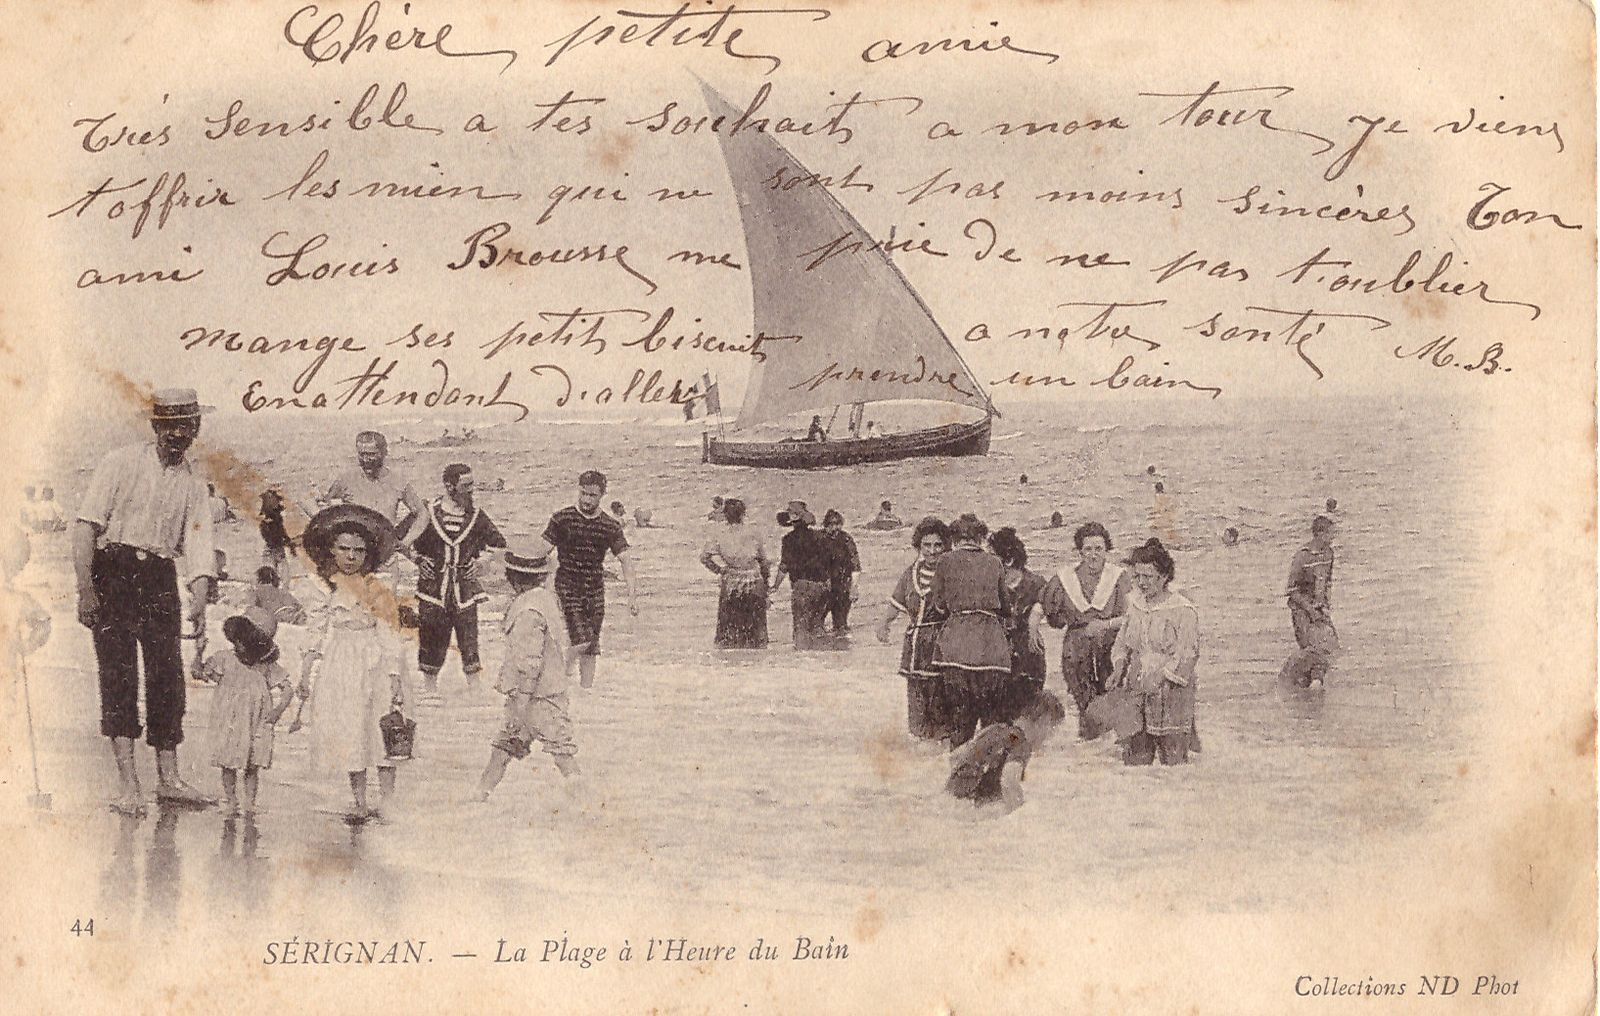 Chère petite amie
Très sensible a tes souhait a mon tour je viens
t'offrir les mien qui ne sont pas moins sincères Ton
ami Louis Brousse me prie de ne pas t'oublier
mange ses petit biscuit a notre santé M.B.
En attendant d'aller prendre un bain
44
SÉRIGNAN. — La Plage à l'Heure du Bain
Collections ND Phot